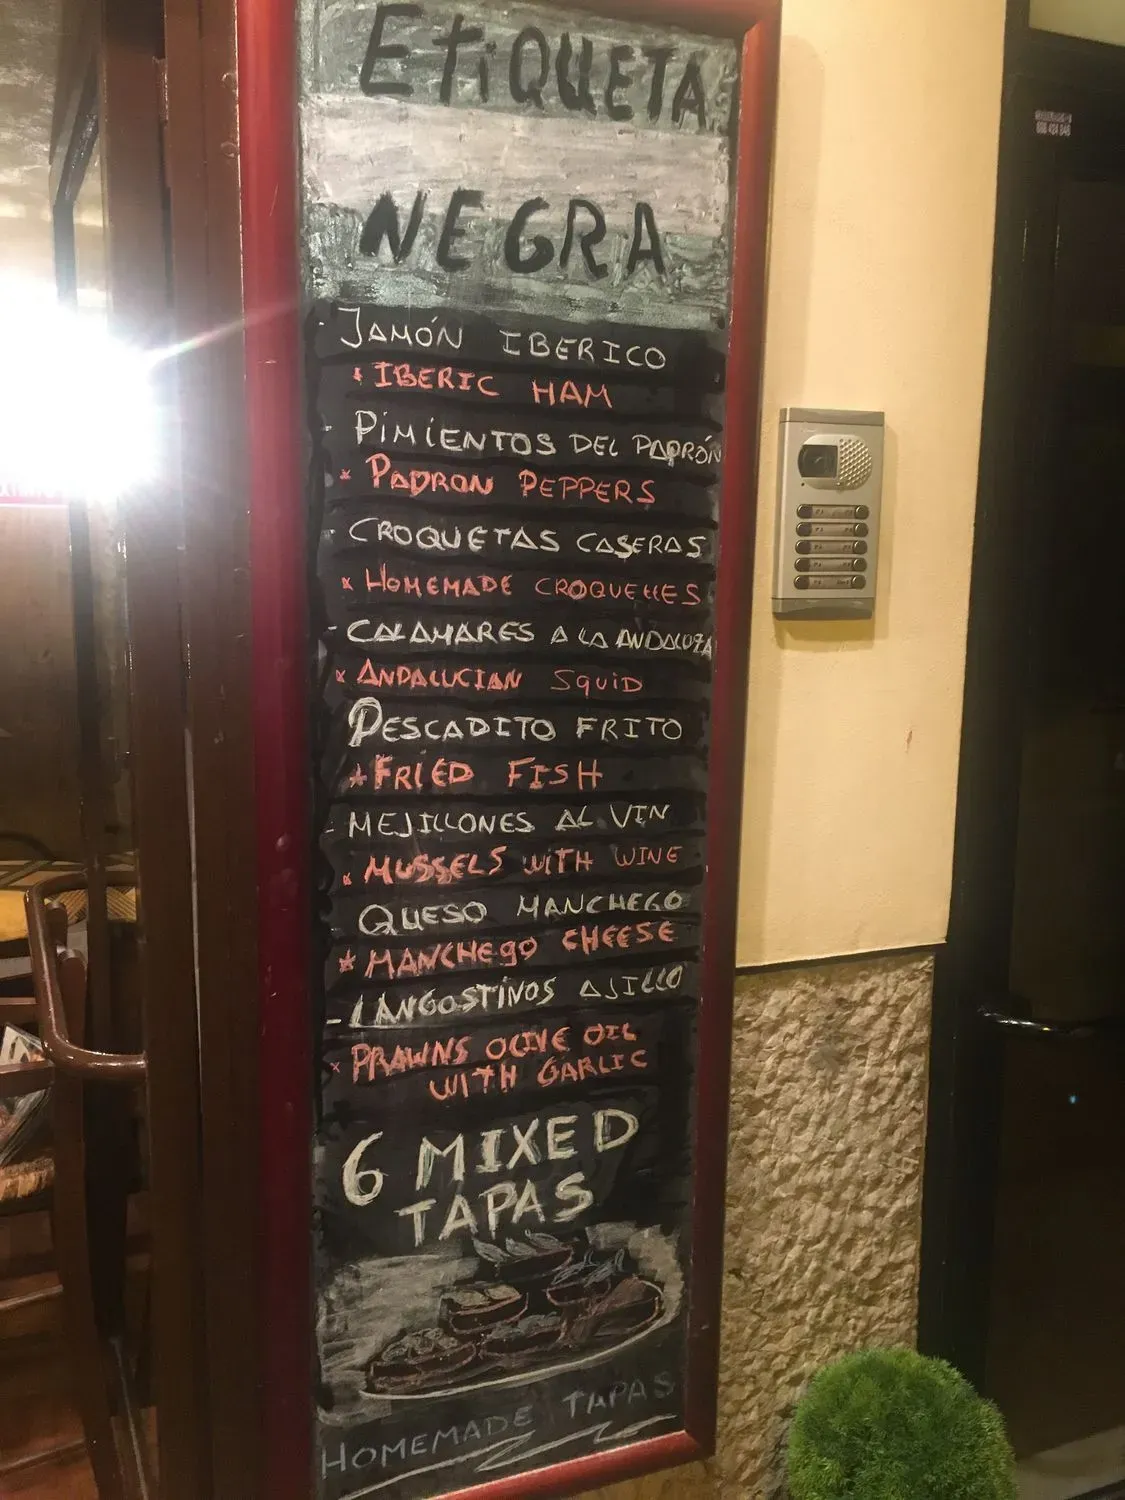 ETiQUETA
NEGRA
- JAMÓN IBERICO
* IBERIC HAM
- PIMIENTOS DEL PADRÓN
* PADRON PEPPERS
- CROQUETAS CASERAS
* HOMEMADE CROQUETTES
- CALAMARES A LA ANDALUZA
* ANDALUCIAN SQUID
PESCADITO FRITO
* FRIED FISH
- MEJILLONES AL VIN
* MUSSELS WITH WINE
QUESO MANCHEGO
* MANCHEGO CHEESE
- LANGOSTINOS AJILLO
* PRAWNS OLIVE OIL
WITH GARLIC
6 MIXED
TAPAS
HOMEMADE TAPAS